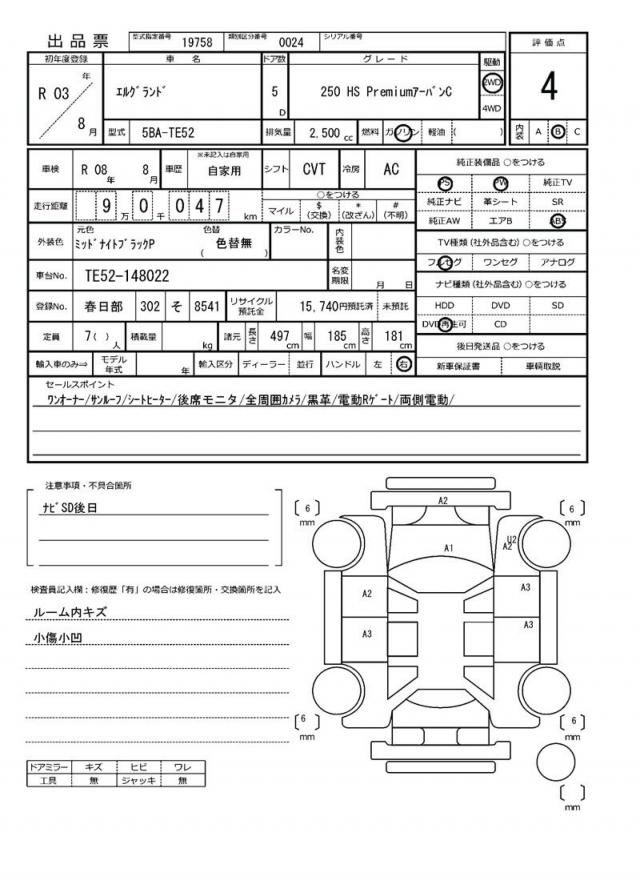 出品票 型式指定番号 19758 類別区分番号 0024 シリアル番号
評価点
4
内装 A B C
初年度登録 車名 ドア数 グレード 駆動
R 03 年 8 月
ｴﾙｸﾞﾗﾝﾄﾞ 5 D 250 HS PremiumｱｰﾊﾞﾝC 2WD
4WD
型式 5BA-TE52 排気量 2,500 cc 燃料 ガソリン 軽油 ( )
車検 R 08 年 8 月 車歴 ※未記入は自家用 自家用 シフト CVT 冷房 AC
走行距離 9 万 0 千 0 4 7 km
○をつける
マイル $ (交換) * (改ざん) # (不明)
外装色 元色 ﾐｯﾄﾞﾅｲﾄﾌﾞﾗｯｸP 色替 ( 色替無 ) カラーNo. 内装色
車台No. TE52-148022 名変期限 月 日
登録No. 春日部 302 そ 8541 リサイクル預託金 15,740円預託済 未預託
定員 7( ) 人 積載量 kg 諸元 長さ 497 cm 幅 185 cm 高さ 181 cm
輸入車のみ⇒ モデル年式 年 輸入区分 ディーラー 並行 ハンドル 左 右
純正装備品 ○をつける
PS PW 純正TV
純正ナビ 革シート SR
純正AW エアB ABS
TV種類 (社外品含む) ○をつける
フルセグ ワンセグ アナログ
ナビ種類 (社外品含む) ○をつける
HDD DVD SD
DVD再生可 CD
後日発送品 ○をつける
新車保証書 車輌取説
セールスポイント
ﾜﾝｵｰﾅｰ/ｻﾝﾙｰﾌ/ｼｰﾄﾋｰﾀｰ/後席モニタ/全周囲ｶﾒﾗ/黒革/電動Rｹﾞｰﾄ/両側電動/
注意事項・不具合箇所
ﾅﾋﾞSD後日
検査員記入欄：修復歴「有」の場合は修復箇所・交換箇所を記入
ルーム内キズ
小傷小凹
ドアミラー キズ ヒビ ワレ
工具 無 ジャッキ 無
A2
[ 6 ] mm
[ 6 ] mm
U2
A2
A1
A2
A3
A3
A3
[ 6 ] mm
[ 6 ] mm
[ ] mm